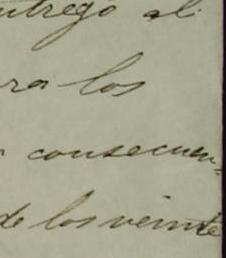 entregó al
ra los
consecuen-
de los veinte